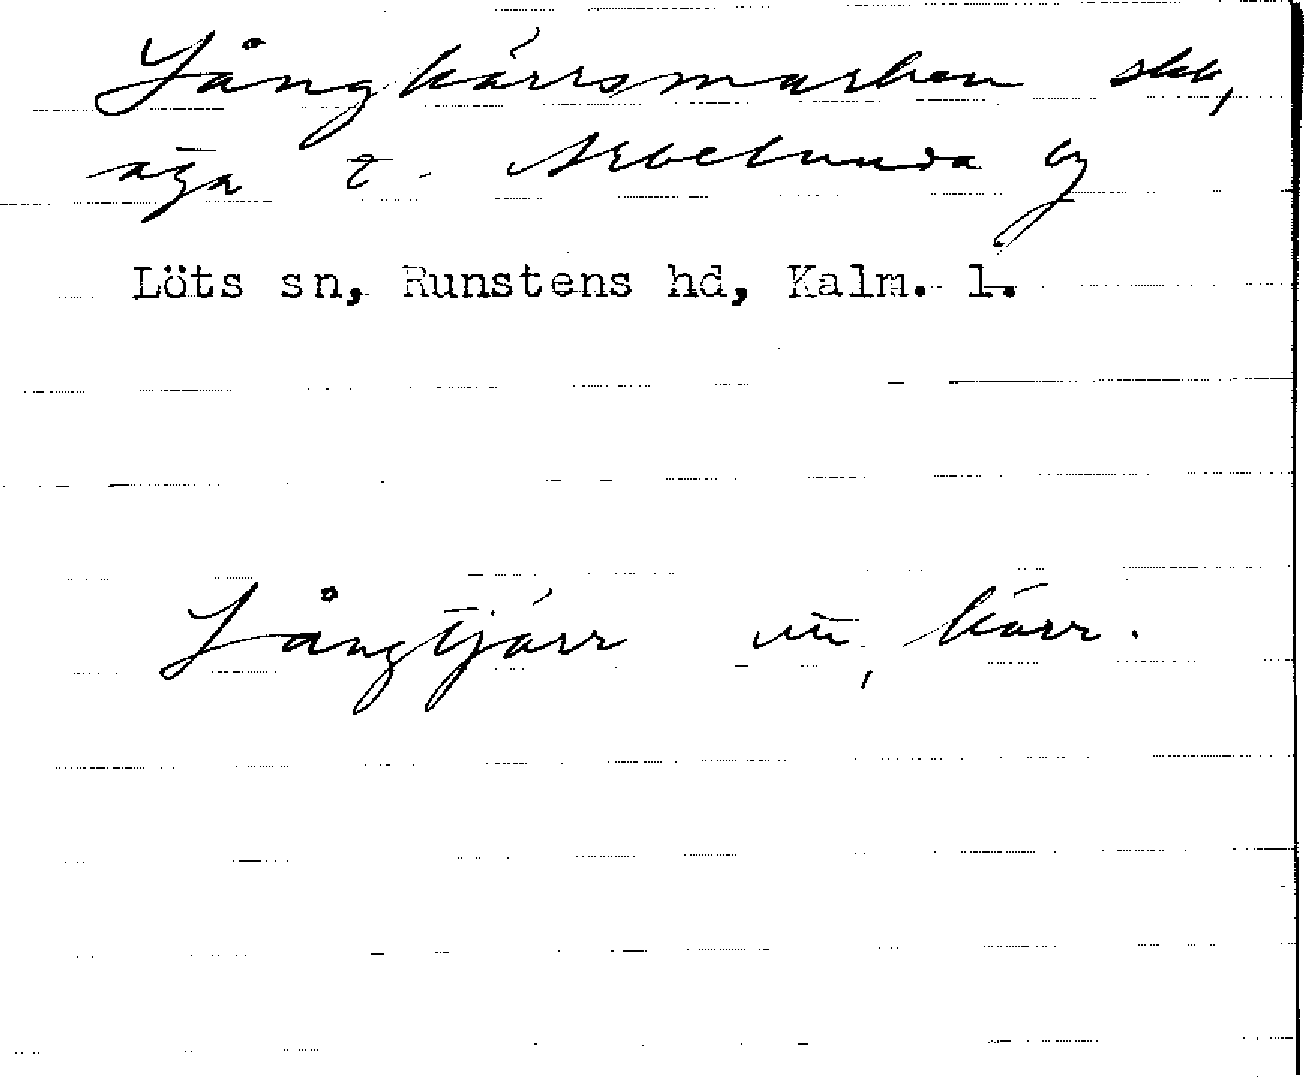 Långkärrsmarken skk,
äga t. Arbelunda by
Löts sn, Runstens hd, Kalm. l.
Långtjärr m, kärr.